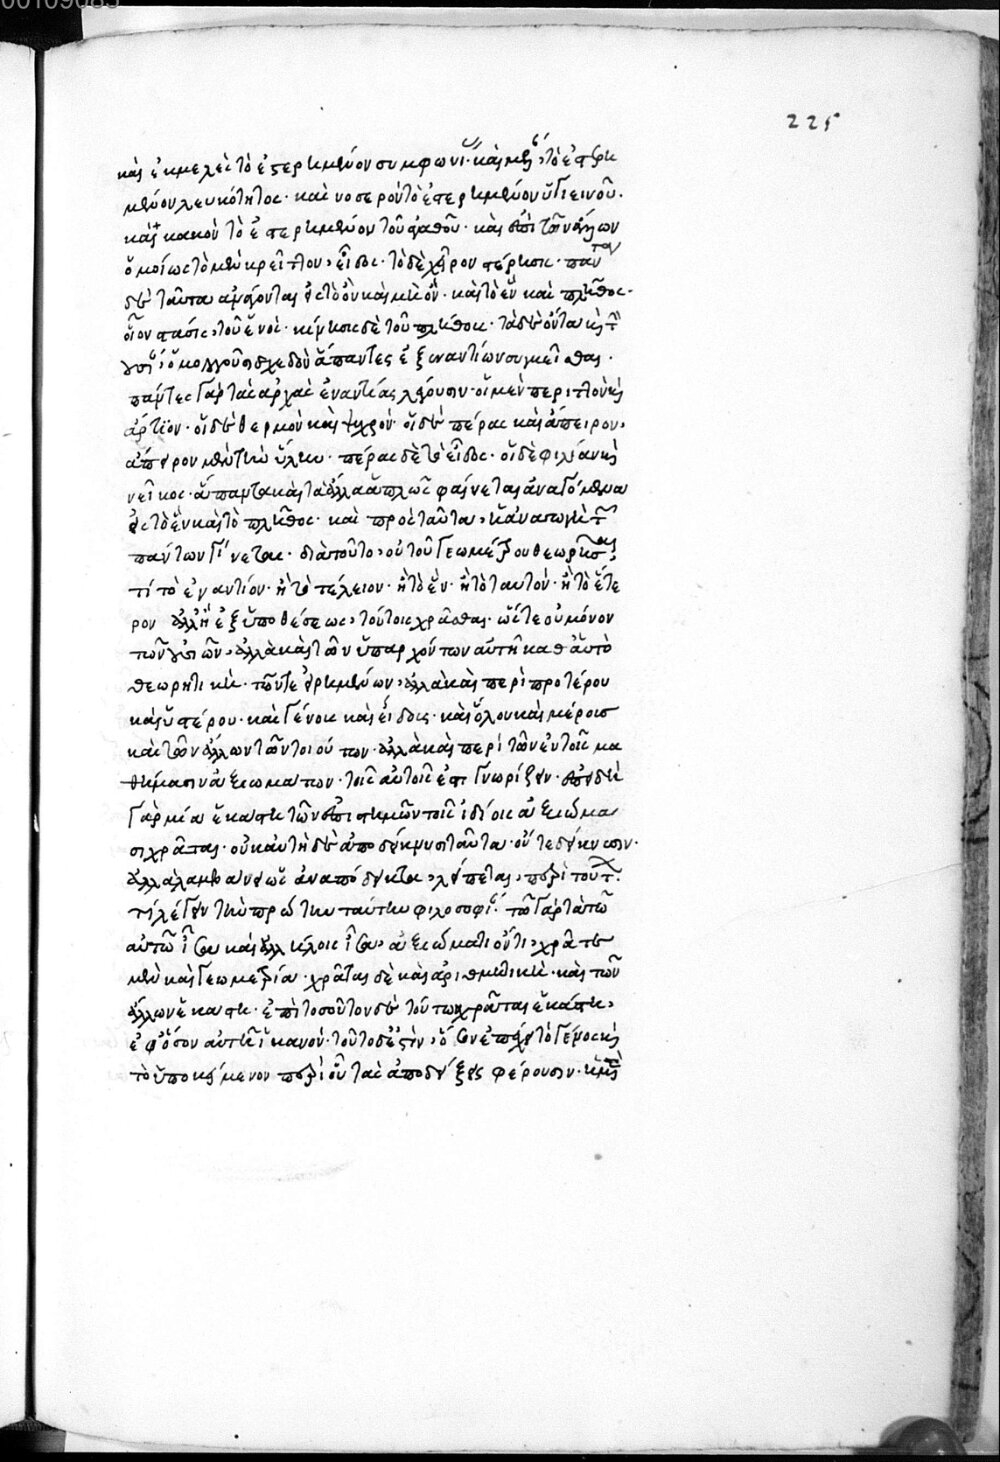 225
καὶ ἐκμελὲς τὸ ἐστερημένον συμφωνί καὶ μέλαν τὸ ἐστερη
μένον λευκότητος· καὶ νοσερὸν τὸ ἐστερημένον ὑγιεινοῦ·
καὶ κακὸν τὸ ἐστερημένον τοῦ ἀγαθοῦ· καὶ ἐπὶ τῶν ἄλλων
ὁμοίως τὸ μὲν κρεῖττον, εἶδος· τὸ δὲ χεῖρον στέρησις· πάντα
δὲ ταῦτα ἀνάγονται εἰς τὸ ὂν καὶ μὴ ὄν· καὶ τὸ ἓν καὶ πλῆθος·
οἷον στάσις, τοῦ ἑνός· κίνησις δὲ τοῦ πλήθους· τὰ δὲ ὄντα καὶ τὴν
οὐσίαν ὁμολογοῦσι σχεδὸν ἅπαντες ἐξ ἐναντίων συγκεῖσθαι·
πάντες γὰρ τὰς ἀρχὰς ἐναντίας λέγουσιν· οἱ μὲν περιττὸν καὶ
ἄρτιον· οἱ δὲ θερμὸν καὶ ψυχρόν· οἱ δὲ πέρας καὶ ἄπειρον,
ἄπειρον μὲν τὴν ὕλην· πέρας δὲ τὸ εἶδος· οἱ δὲ φιλίαν καὶ
νεῖκος· ἅπαντα καὶ τὰ ἄλλα ἁπλῶς φαίνεται ἀναγόμενα
εἰς τὸ ἓν καὶ τὸ πλῆθος· καὶ πρὸς ταῦτα, ἡ ἀναγωγὴ τῶν
πάντων γίνεται· διὰ τοῦτο, οὐ τοῦ γεωμέτρου θεωρῆσαι,
τί τὸ ἐναντίον· ἢ τὸ τέλειον· ἢ τὸ ἕν· ἢ τὸ ταυτόν· ἢ τὸ ἕτε
ρον ἀλλ' ἢ ἐξ ὑποθέσεως, τούτοις χρᾶσθαι· ὥστε οὐ μόνον
τῶν οὐσιῶν, ἀλλὰ καὶ τῶν ὑπαρχόντων αὕτη καθ' αὑτὸ
θεωρητική· τῶν τε εἰρημένων, ἀλλὰ καὶ περὶ προτέρου
καὶ ὑστέρου· καὶ γένους καὶ εἴδους· καὶ ὅλου καὶ μέρους
καὶ τῶν ἄλλων τῶν τοιούτων· ἀλλὰ καὶ περὶ τῶν ἐν τοῖς μα
θήμασιν ἀξιωμάτων· τῆς αὐτῆς ἐστι γνωρίζειν· ἐπειδὴ
γὰρ μία ἑκάστη τῶν ἐπιστημῶν τοῖς ἰδίοις ἀξιώμα
σι χρᾶται· οὐκ αὐτὴ δὲ ἀποδείκνυσι ταῦτα· οὔτε δείκνυσιν·
ἀλλὰ λαμβάνει ὡς ἀναπόδεικτα, λείπεται, περὶ τούτων
τί λέγειν τὴν πρώτην ταύτην φιλοσοφί τῷ γὰρ τὰ τῷ
αὐτῷ ἴσα καὶ ἀλλήλοις ἴσα, ἀξιώματι ὄντι, χρᾶται
μὲν καὶ γεωμετρία· χρᾶται δὲ καὶ ἀριθμητική· καὶ τῶν
ἄλλων ἑκάστη· ἐπὶ τοσοῦτον δὲ τούτῳ χρᾶται ἑκάστη,
ἐφ' ὅσον αὐτῇ ἱκανόν· τοῦτο δέ ἐστιν, ὅσον ἐπέχει τὸ γένος καὶ
τὸ ὑποκείμενον περὶ οὗ τὰς ἀποδείξεις φέρουσιν·